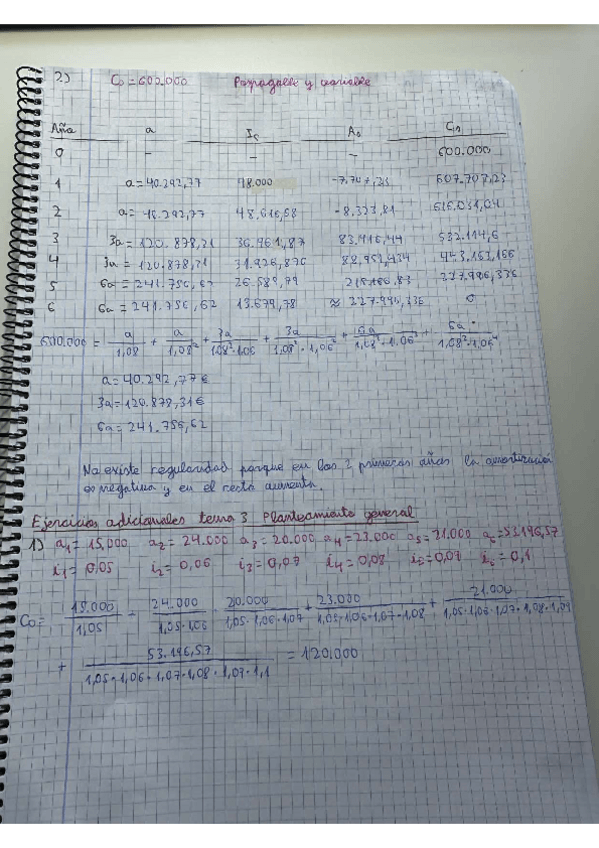 2) C₀ = 600.000 Pospagable y variable
Año a Iₛ Aₛ Cₙ
0 - - - 600.000
1 a = 40.292,77 48.000 -7.707,23 607.707,23
2 a = 40.292,77 48.616,58 -8.323,81 616.031,04
3 3a = 120.878,31 36.961,87 83.916,44 532.114,6
4 3a = 120.878,31 31.926,876 88.951,434 443.163,166
5 6a = 241.756,62 26.589,79 215.166,83 227.996,336
6 6a = 241.756,62 13.679,78 ≈ 227.996,336 0
600.000 = a/1,08 + a/1,08² + 3a/1,08²·1,06 + 3a/1,08²·1,06² + 6a/1,08²·1,06³ + 6a/1,08²·1,06⁴
a = 40.292,77€
3a = 120.878,31€
6a = 241.756,62
No existe regularidad porque en los 2 primeros años la amortización
es negativa y en el resto aumenta.
Ejercicios adicionales tema 3 Planteamiento general
1) a₁ = 15.000 a₂ = 24.000 a₃ = 20.000 a₄ = 23.000 a₅ = 21.000 a₆ = 53.196,57
i₁ = 0,05 i₂ = 0,06 i₃ = 0,07 i₄ = 0,08 i₅ = 0,09 i₆ = 0,1
C₀ = 15.000/1,05 + 24.000/1,05·1,06 + 20.000/1,05·1,06·1,07 + 23.000/1,05·1,06·1,07·1,08 + 21.000/1,05·1,06·1,07·1,08·1,09
+ 53.196,57/1,05·1,06·1,07·1,08·1,09·1,1 = 120.000